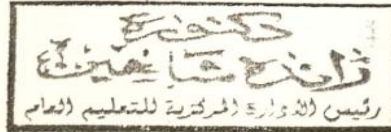 دكتورة
زائدة شاهين
رئيس الادارة المركزية للتعليم العام